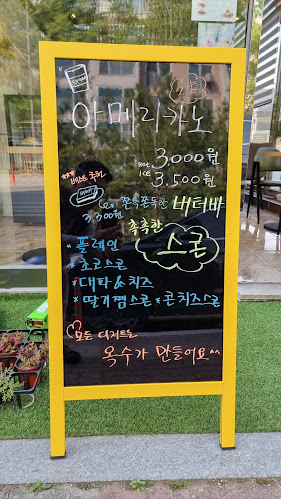 아메리카노
HOT 3,000원
ICE 3,500원
쫀득쫀득한 버터바
3,300원
촉촉한 스콘
*플레인
*초코스콘
*대파&치즈
*딸기쨈스콘 *콘치즈스콘
모든 디저트는
옥수가 만들어요^^